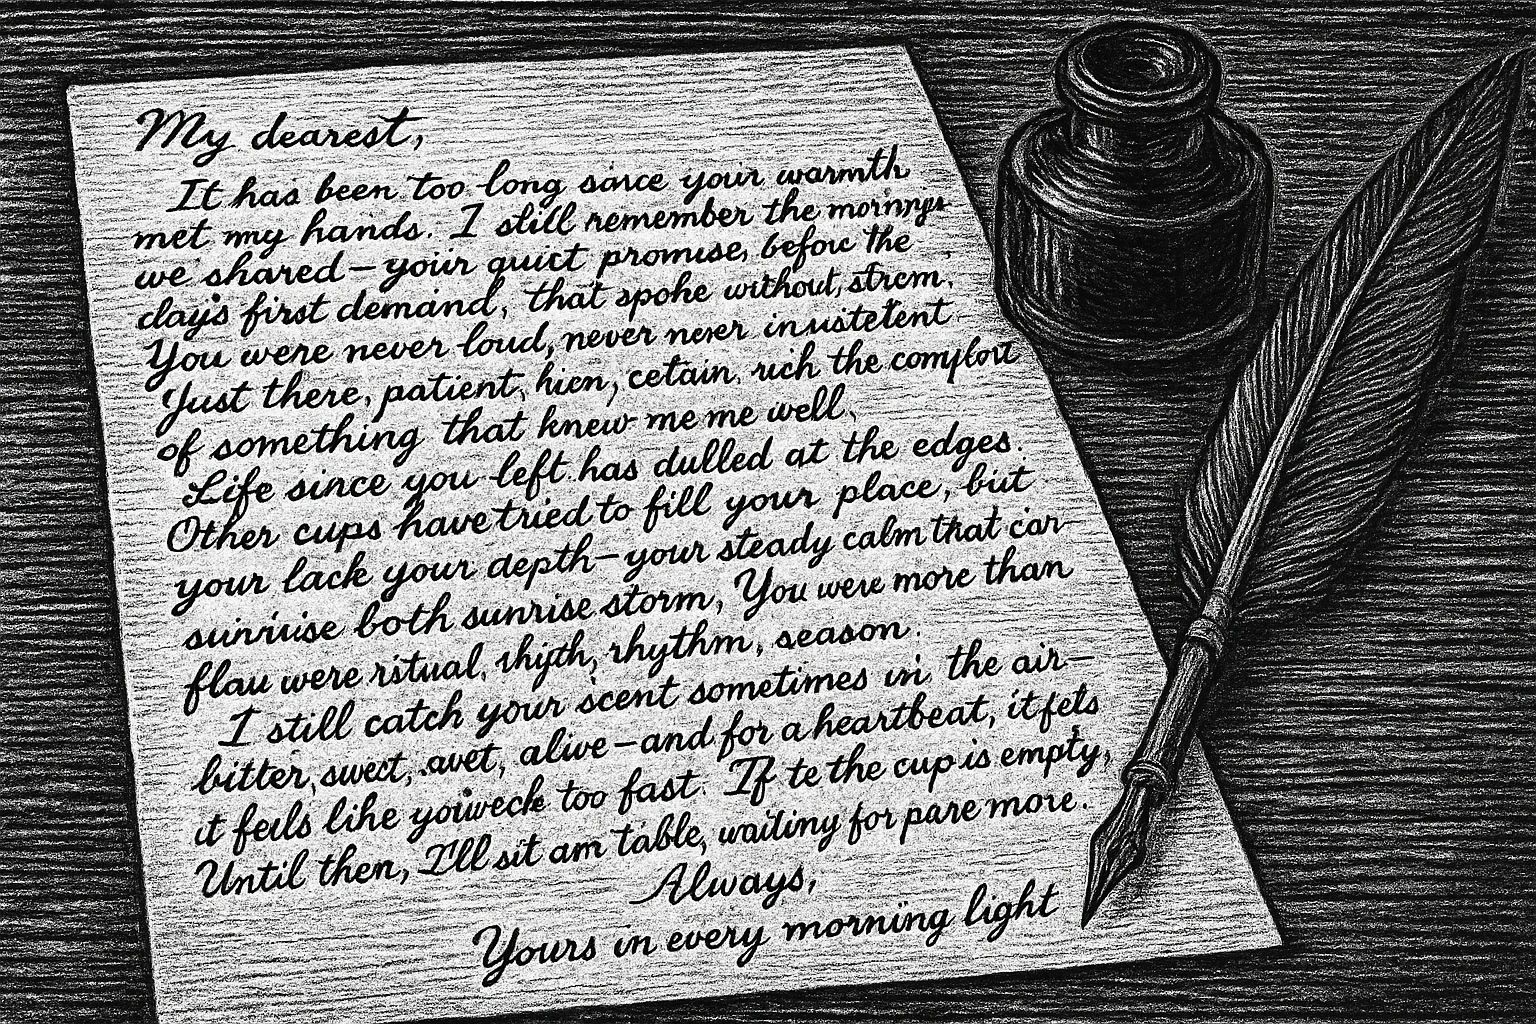 My dearest,
It has been too long since your warmth
met my hands. I still remember the mornings
we shared—your quiet promise, before the
day's first demand, that spoke without, strem.
You were never loud, never never insistetent
Just there, patient, hien, cetain, rich the comfort
of something that knew me me well,
Life since you left has dulled at the edges.
Other cups have tried to fill your place, but
your lack your depth—your steady calm that can
sunriuise both sunrise storm, You were more than
flau were ritual, rhyth, rhythm, season.
I still catch your scent sometimes in the air—
bitter, swect, avet, alive—and for a heartbeat, it fels
it feels like too fast. If te the cup is empty,
Until then, I'll sit am table, waitiny for pare more.
Always,
Yours in every morning light